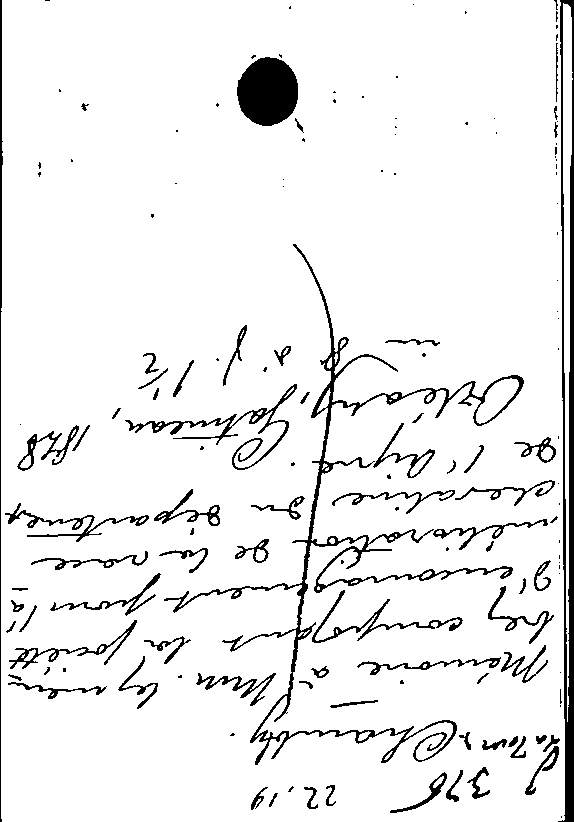 376 22.19
Mémoire à Mm. les mem=
bres composant la société
d'encouragement pour l'a=
mélioration de la race
chevaline du département
de l'Aisne.
Orléans, Gatineau, 1828
in 8° 1 ½